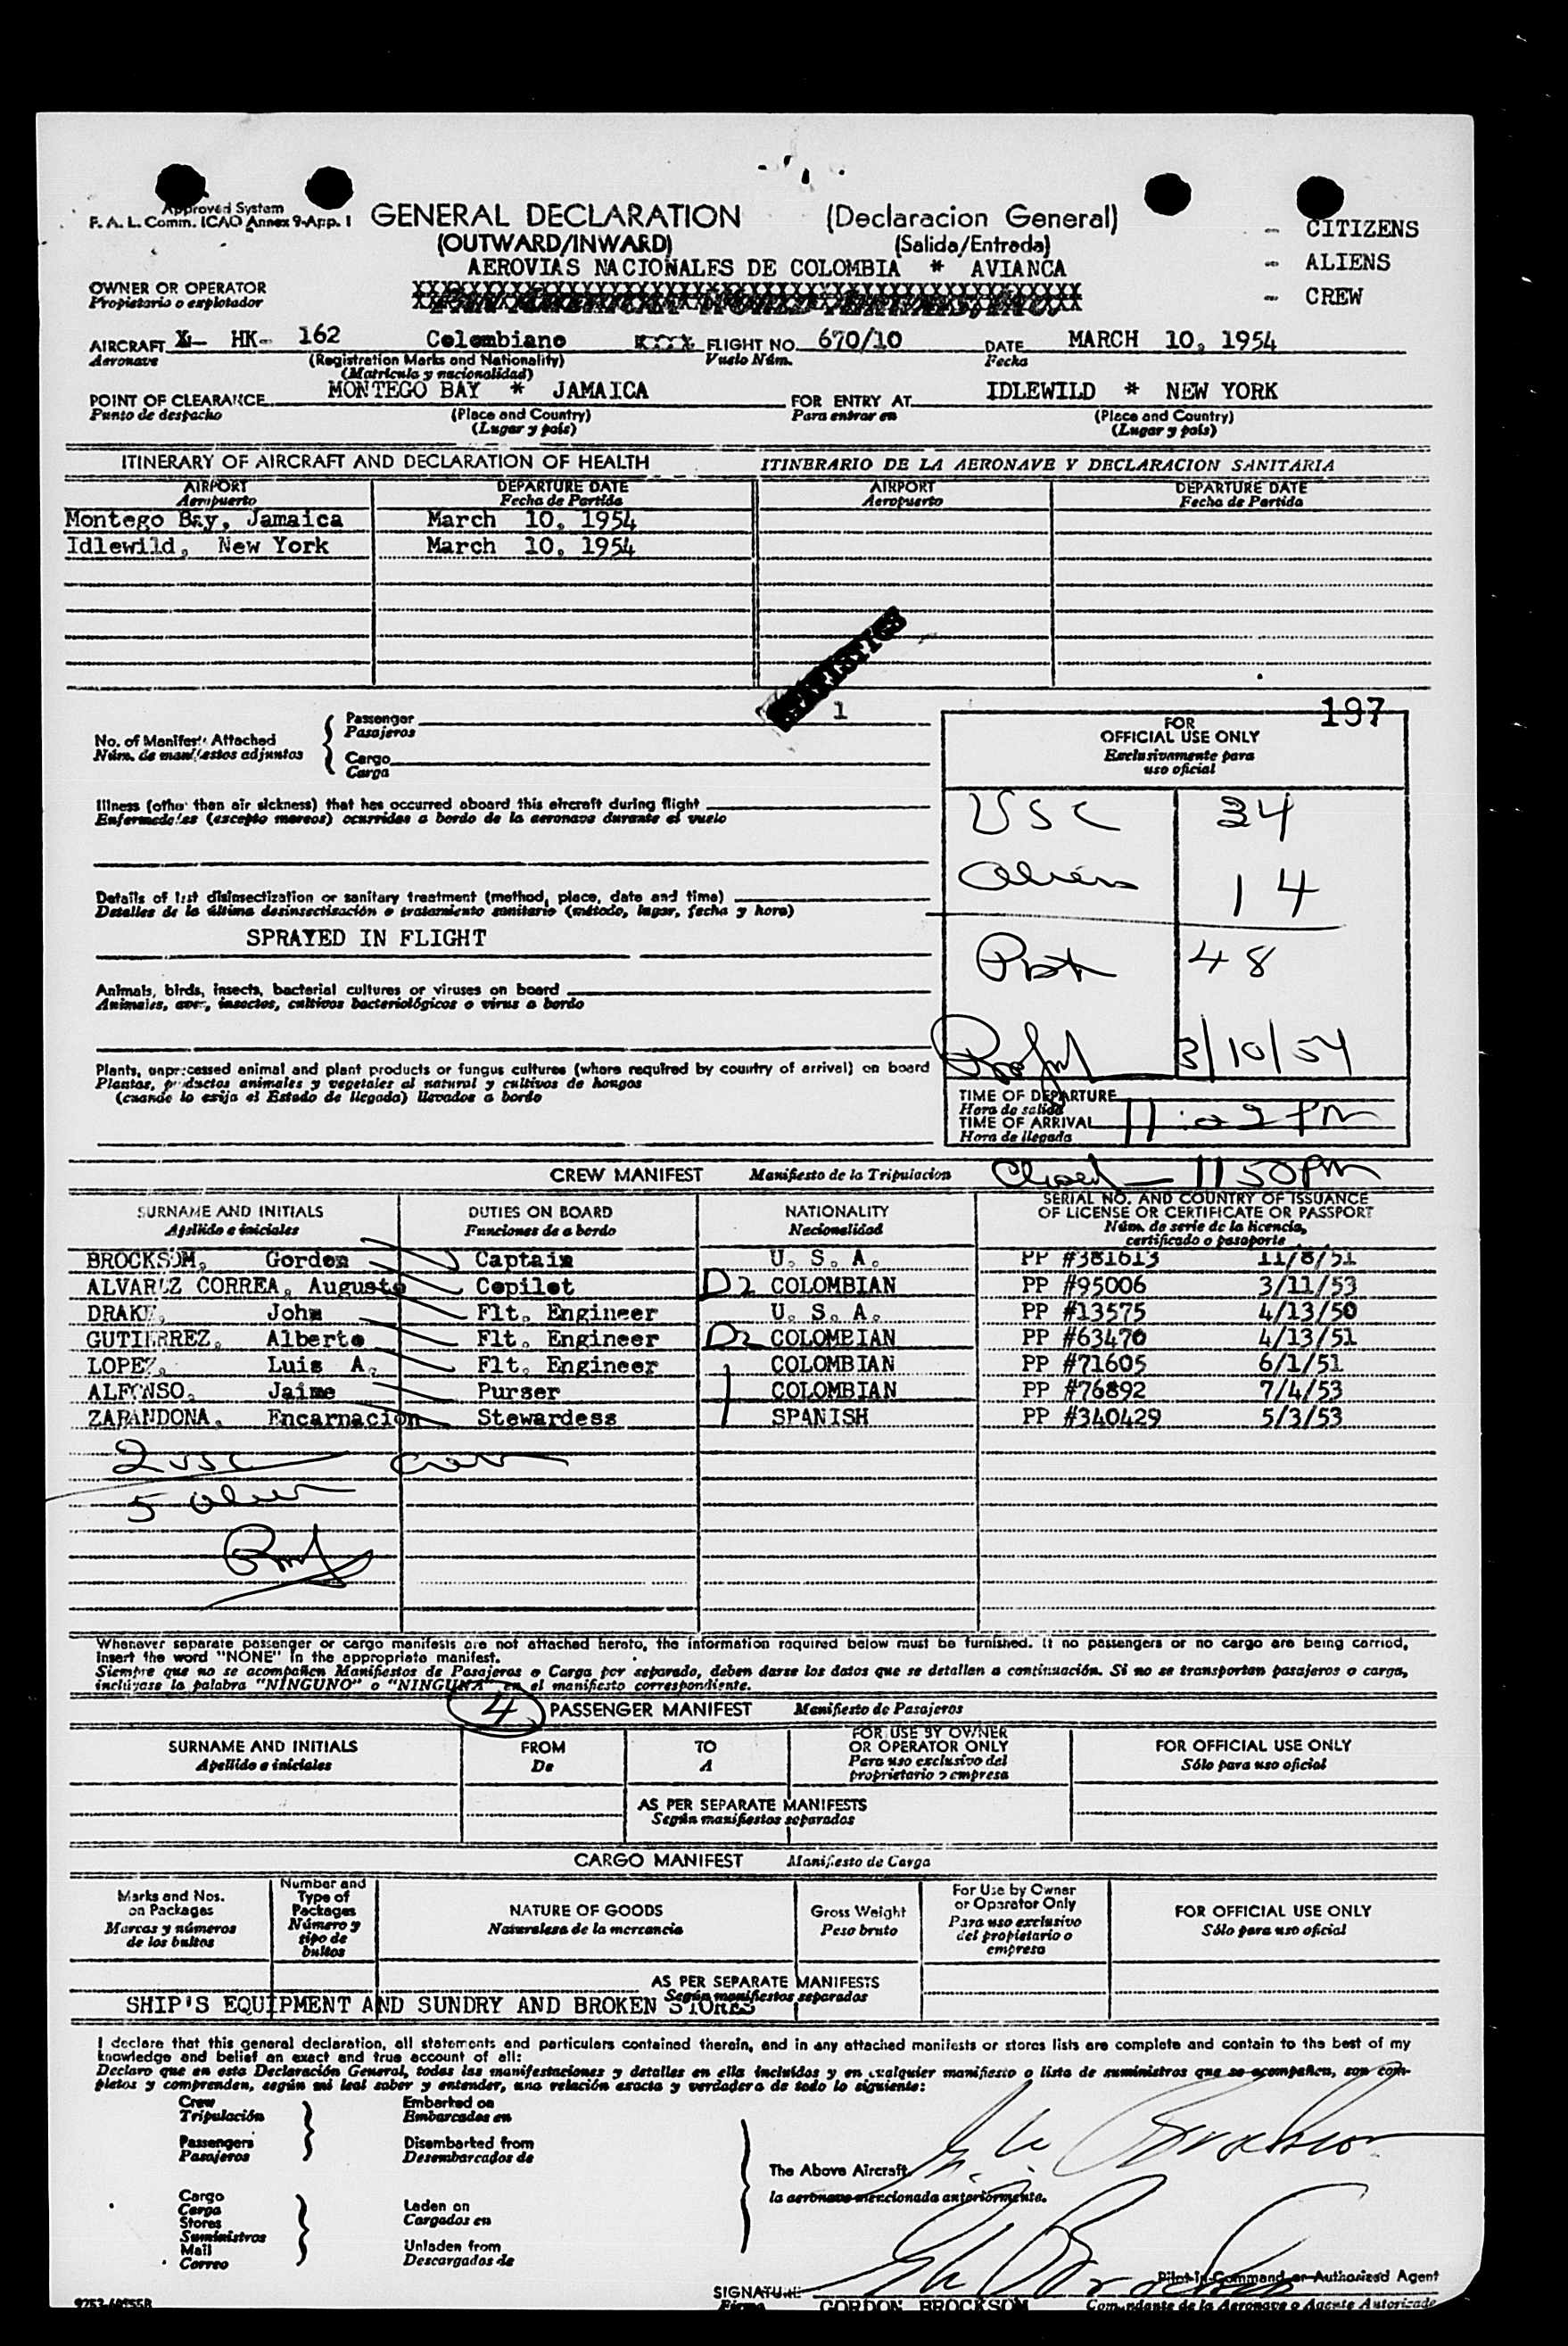 Approved System
F. A. L. Comm. ICAO Annex 9-App. I
GENERAL DECLARATION (Declaracion General)
(OUTWARD/INWARD) (Salida/Entrada)
- CITIZENS
- ALIENS
- CREW
AEROVIAS NACIONALES DE COLOMBIA * AVIANCA
OWNER OR OPERATOR
Propietario o explotador
AIRCRAFT HK- 162 Colombiano FLIGHT NO. 670/10 DATE MARCH 10, 1954
Aeronave (Registration Marks and Nationality) Vuelo Núm. Fecha
(Matricula y nacionalidad)
POINT OF CLEARANCE MONTEGO BAY * JAMAICA FOR ENTRY AT IDLEWILD * NEW YORK
Punto de despacho (Place and Country) Para entrar en (Place and Country)
(Lugar y pais) (Lugar y pais)
ITINERARY OF AIRCRAFT AND DECLARATION OF HEALTH ITINERARIO DE LA AERONAVE Y DECLARACION SANITARIA
AIRPORT DEPARTURE DATE AIRPORT DEPARTURE DATE
Aeropuerto Fecha de Partida Aeropuerto Fecha de Partida
Montego Bay, Jamaica March 10, 1954
Idlewild, New York March 10, 1954
STATISTICS
1
197
No. of Manifest Attached
Núm. de manifiestos adjuntos
Passenger
Pasajeros
Cargo
Carga
FOR
OFFICIAL USE ONLY
Exclusivamente para
uso oficial
USC 34
Aliens 14
48
3/10/54
TIME OF DEPARTURE
Hora de salida
TIME OF ARRIVAL 11:02 PM
Hora de llegada
Illness (other than air sickness) that has occurred aboard this aircraft during flight
Enfermedades (excepto mareos) ocurridas a bordo de la aeronave durante el vuelo
Details of last disinsectization or sanitary treatment (method, place, date and time)
Detalles de la última desinsectización o tratamiento sanitario (método, lugar, fecha y hora)
SPRAYED IN FLIGHT
Animals, birds, insects, bacterial cultures or viruses on board
Animales, aves, insectos, cultivos bacteriológicos o virus a bordo
Plants, unprocessed animal and plant products or fungus cultures (where required by country of arrival) on board
Plantas, productos animales y vegetales al natural y cultivos de hongos
(cuando lo exija el Estado de llegada) llevados a bordo
CREW MANIFEST Manifiesto de la Tripulacion Closed - 11 50 PM
SURNAME AND INITIALS DUTIES ON BOARD NATIONALITY SERIAL NO. AND COUNTRY OF ISSUANCE
OF LICENSE OR CERTIFICATE OR PASSPORT
Apellido e iniciales Funciones de a bordo Nacionalidad Núm. de serie de la licencia,
certificado o pasaporte
BROCKSOM, Gordon Captain U. S. A. PP #381613 11/8/51
ALVAREZ CORREA, Augusto Copilot D2 COLOMBIAN PP #95006 3/11/53
DRAKE, John Flt. Engineer U. S. A. PP #13575 4/13/50
GUTIERREZ, Alberto Flt. Engineer D2 COLOMBIAN PP #63470 4/13/51
LOPEZ, Luis A. Flt. Engineer COLOMBIAN PP #71605 6/1/51
ALFONSO, Jaime Purser COLOMBIAN PP #76892 7/4/53
ZARANDONA, Encarnacion Stewardess SPANISH PP #340429 5/3/53
2 USC crew
5 alien
Whenever separate passenger or cargo manifests are not attached hereto, the information required below must be furnished. If no passengers or no cargo are being carried,
insert the word "NONE" in the appropriate manifest.
Siempre que no se acompañen Manifiestos de Pasajeros o Carga por separado, deben darse los datos que se detallan a continuación. Si no se transportan pasajeros o carga,
inclúyase la palabra "NINGUNO" o "NINGUNA" en el manifiesto correspondiente.
4 PASSENGER MANIFEST Manifiesto de Pasajeros
SURNAME AND INITIALS FROM TO FOR USE BY OWNER
OR OPERATOR ONLY FOR OFFICIAL USE ONLY
Apellido e iniciales De A Para uso exclusivo del
proprietario o empresa Sólo para uso oficial
AS PER SEPARATE MANIFESTS
Según manifiestos separados
CARGO MANIFEST Manifiesto de Carga
Marks and Nos.
on Packages
Marcas y números
de los bultos
Number and
Type of
Packages
Número y
tipo de
bultos
NATURE OF GOODS
Naturalesa de la mercancia
Gross Weight
Peso bruto
For Use by Owner
or Operator Only
Para uso exclusivo
del propietario o
empresa
FOR OFFICIAL USE ONLY
Sólo para uso oficial
AS PER SEPARATE MANIFESTS
Según manifiestos separados
SHIP'S EQUIPMENT AND SUNDRY AND BROKEN STORES
I declare that this general declaration, all statements and particulars contained therein, and in any attached manifests or stores lists are complete and contain to the best of my
knowledge and belief an exact and true account of all:
Declaro que en esta Declaración General, todas las manifestaciones y detalles en ella incluidos y en cualquier manifiesto o lista de suministros que se acompañen, son com-
pletos y comprenden, según mi leal saber y entender, una relación exacta y verdadera de todo lo siguiente:
Crew
Tripulación
Passengers
Pasajeros
Embarked on
Embarcados en
Disembarked from
Desembarcados de
Cargo
Carga
Stores
Suministros
Mail
Correo
Laden on
Cargados en
Unladen from
Descargados de
The Above Aircraft.
la aeronave mencionada anteriormente.
Pilot-in-Command or Authorized Agent
SIGNATURE
Firma GORDON BROCKSOM Comandante de la Aeronave o Agente Autorizado